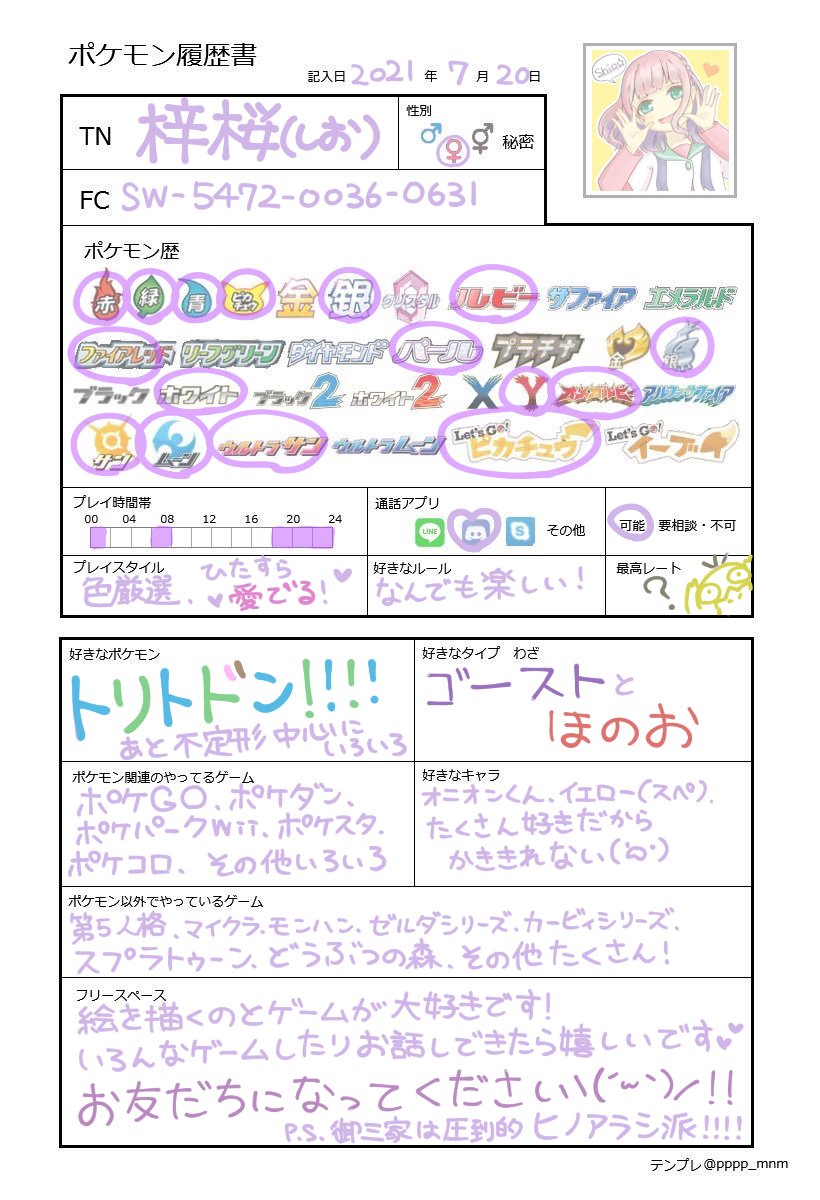 ポケモン履歴書
記入日 2021 年 7 月 20 日
Shio☆
TN 梓桜(しお)
性別
秘密
FC SW-5472-0036-0631
ポケモン歴
赤 緑 青 ピカチュウ 金 銀 クリスタル ルビー サファイア エメラルド
ファイアレッド リーフグリーン ダイヤモンド パール プラチナ 金 銀
ブラック ホワイト ブラック2 ホワイト2 X Y オメガルビー アルファサファイア
サン ムーン ウルトラサン ウルトラムーン Let's Go! ピカチュウ Let's Go! イーブイ
プレイ時間帯
00 04 08 12 16 20 24
通話アプリ
LINE S その他
可能 要相談・不可
プレイスタイル
色厳選、ひたすら
愛でる!
好きなルール
なんでも楽しい!
最高レート
?
好きなポケモン
トリトドン!!!!
あと不定形中心に
いろいろ
好きなタイプ わざ
ゴーストと
ほのお
ポケモン関連のやってるゲーム
ポケGO、ポケダン、
ポケパークWii、ポケスタ.
ポケコロ、その他いろいろ
好きなキャラ
オニオンくん、イエロー(スペ).
たくさん好きだから
かききれない(
ポケモン以外でやっているゲーム
第5人格、マイクラ.モンハン、ゼルダシリーズ、カービィシリーズ、
スプラトゥーン、どうぶつの森、その他たくさん!
フリースペース
絵を描くのとゲームが大好きです!
いろんなゲームしたりお話しできたら嬉しいです
お友だちになってください\(´ω`)/!!
P.S. 御三家は圧到的 ヒノアラシ派!!!!
テンプレ@pppp_mnm